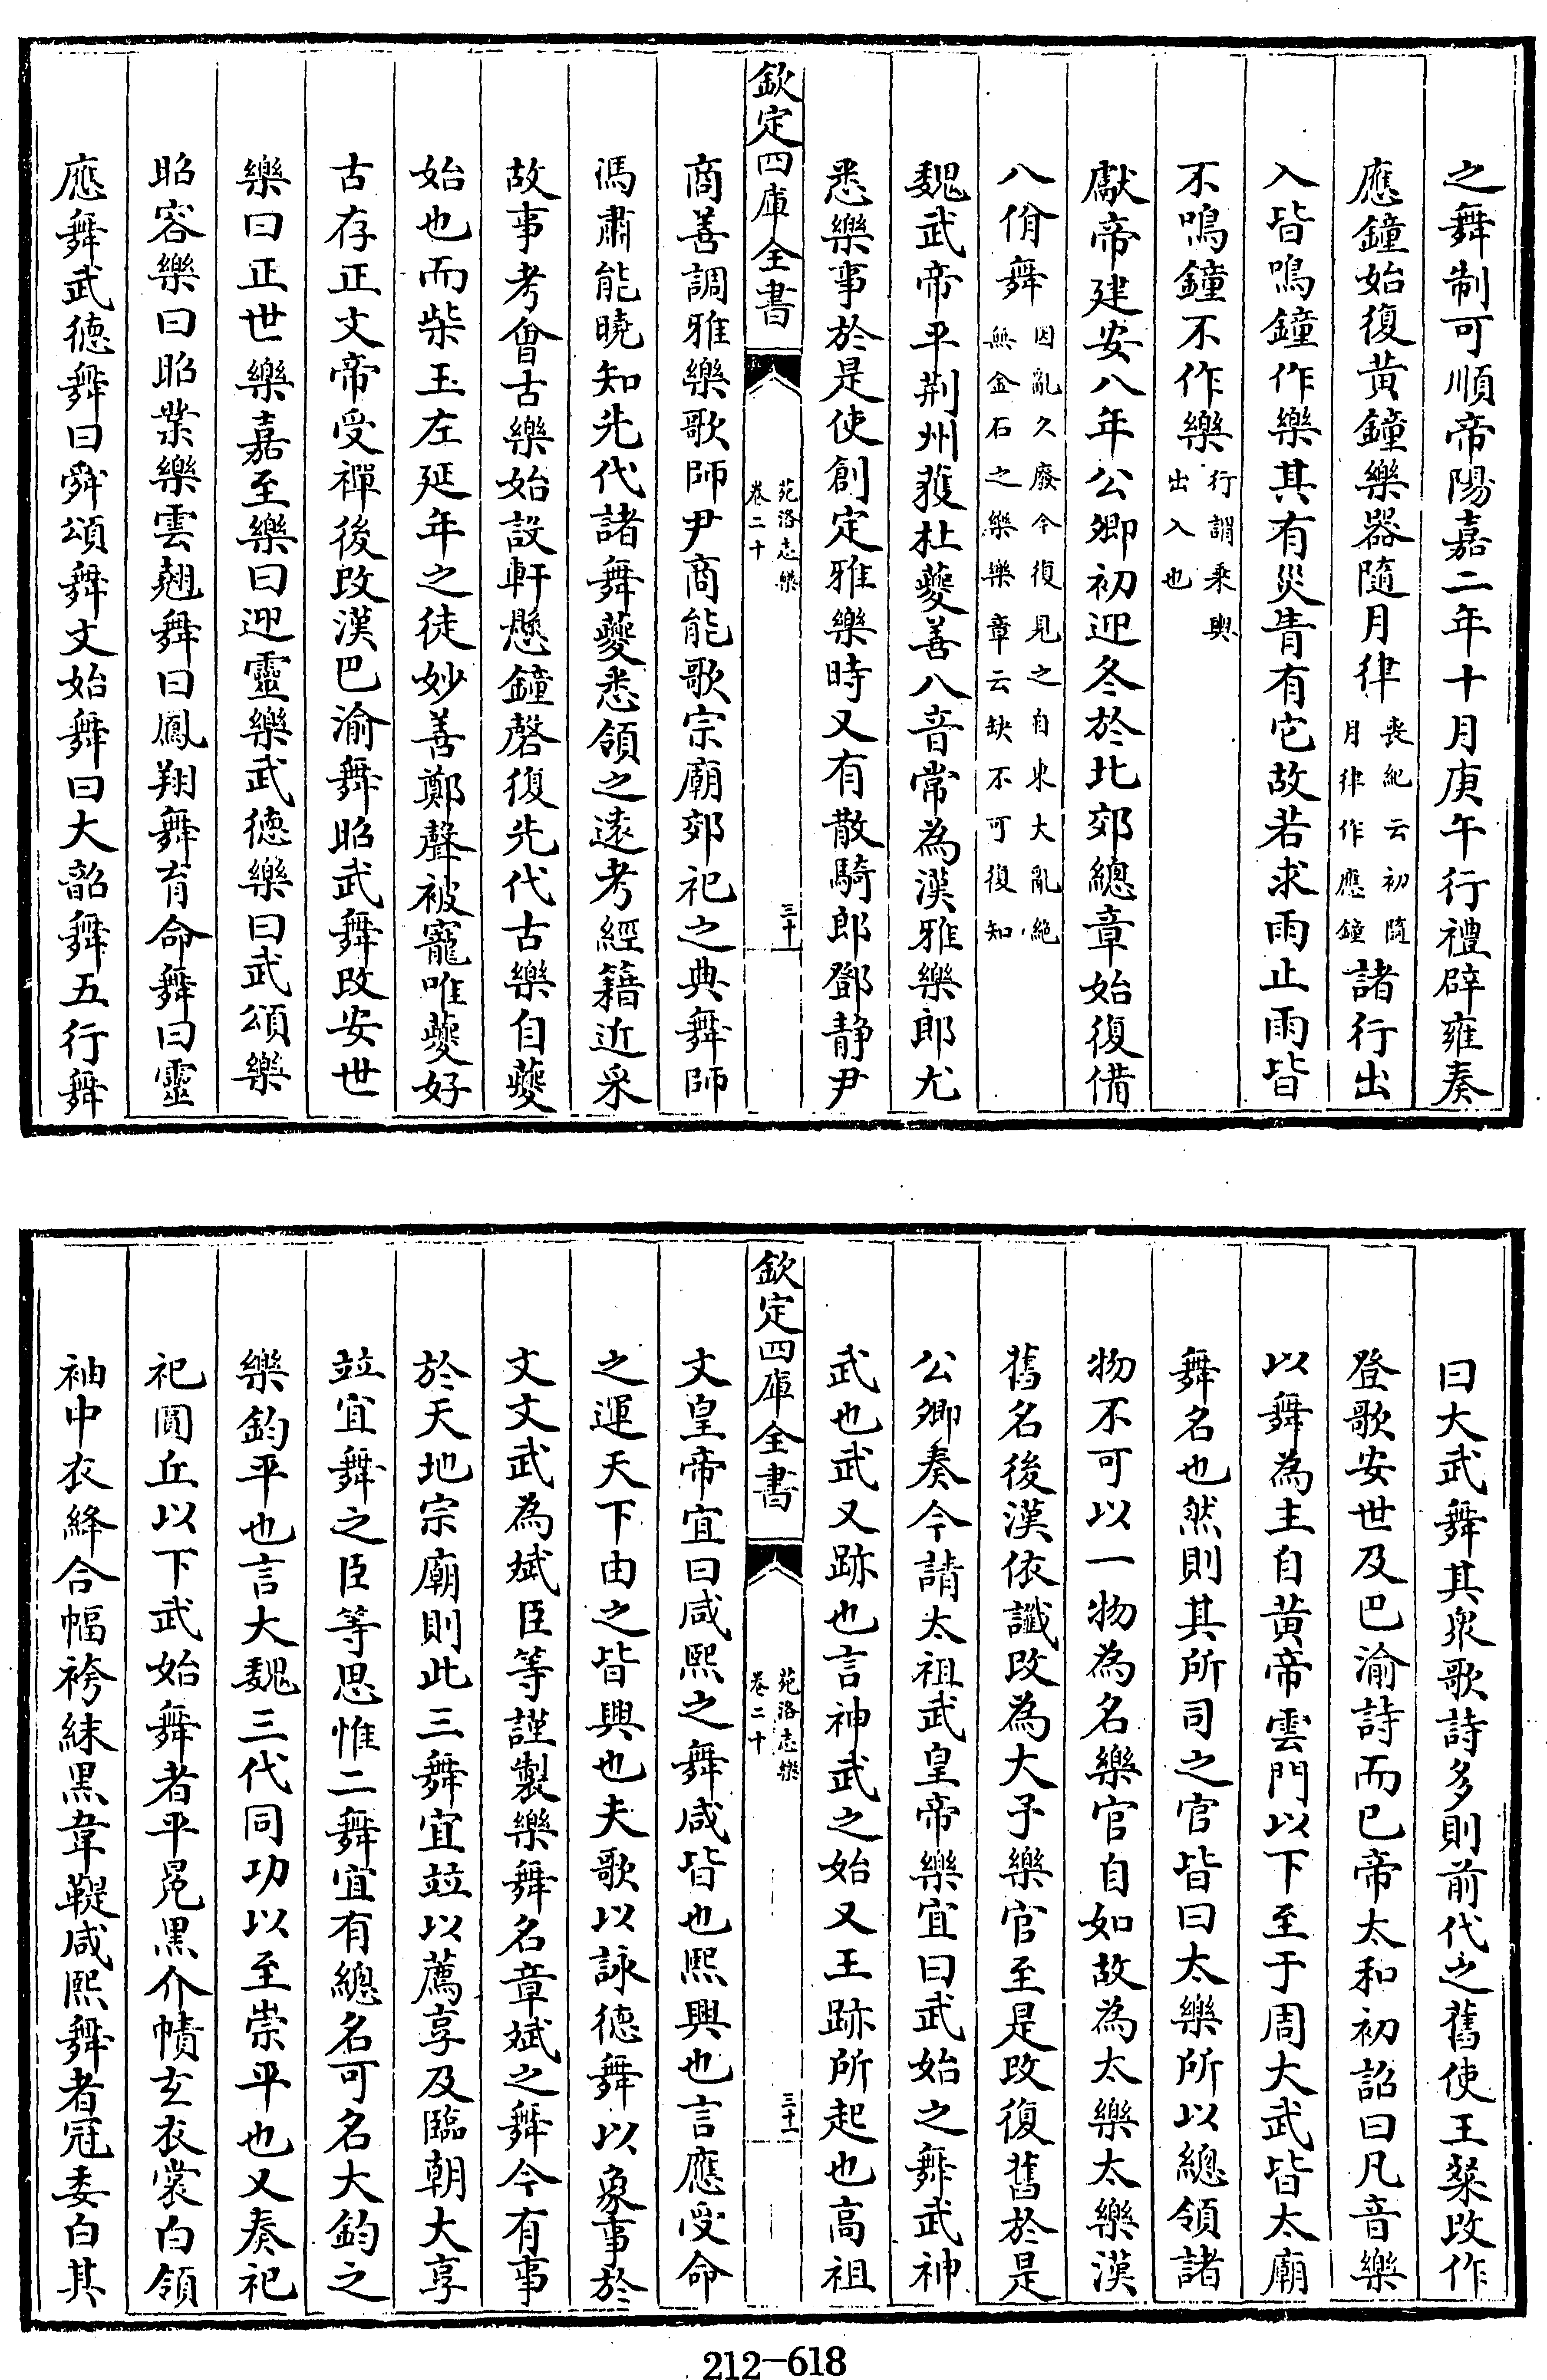 之舞制可順帝陽嘉二年十月庚午行禮辟雍奏
應鐘始復黃鐘樂器隨月律喪紀云初隨月律作應鐘諸行出
入皆鳴鐘作樂其有災眚有它故若求雨止雨皆
不鳴鐘不作樂行謂乘輿出入也
獻帝建安八年公卿初迎冬於北郊總章始復備
八佾舞因亂久廢今復見之自東大亂絕無金石之樂樂章云缺不可復知
魏武帝平荆州獲杜夔善八音常為漢雅樂郎尤
悉樂事於是使創定雅樂時又有散騎郎鄧静尹
欽定四庫全書
苑洛志樂
卷二十
三十
商善調雅樂歌師尹商能歌宗廟郊祀之典舞師
馮肅能曉知先代諸舞夔悉領之遠考經籍近采
故事考會古樂始設軒懸鐘磬復先代古樂自夔
始也而柴玉左延年之徒妙善鄭聲被寵唯夔好
古存正文帝受禪後改漢巴渝舞昭武舞改安世
樂曰正世樂嘉至樂曰迎靈樂武德樂曰武頌樂
昭容樂曰昭業樂雲翹舞曰鳳翔舞育命舞曰靈
應舞武德舞曰舜頌舞文始舞曰大韶舞五行舞
曰大武舞其衆歌詩多則前代之舊使王粲改作
登歌安世及巴渝詩而已帝太和初詔曰凡音樂
以舞為主自黃帝雲門以下至于周大武皆太廟
舞名也然則其所司之官皆曰太樂所以總領諸
物不可以一物為名樂官自如故為太樂太樂漢
舊名後漢依讖改為大予樂官至是改復舊於是
公卿奏今請太祖武皇帝樂宜曰武始之舞武神
武也武又跡也言神武之始又王跡所起也高祖
欽定四庫全書
苑洛志樂
卷二十
三十一
文皇帝宜曰咸熙之舞咸皆也熙興也言應受命
之運天下由之皆興也夫歌以詠德舞以象事於
文文武為斌臣等謹製樂舞名章斌之舞今有事
於天地宗廟則此三舞宜竝以薦享及臨朝大享
竝宜舞之臣等思惟二舞宜有總名可名大鈞之
樂鈞平也言大魏三代同功以至崇平也又奏祀
祀圓丘以下武始舞者平冕黑介幘玄衣裳白領
袖中衣絳合幅袴絑黑韋鞮咸熙舞者冠委白其
212-618